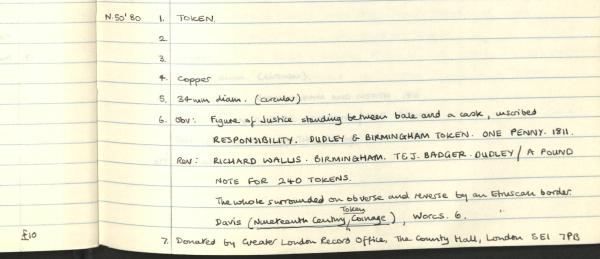 N.50'80 1. TOKEN.
2.
3.
4. Copper
5. 34mm diam. (circular)
6. Obv: Figure of Justice standing between bale and a cask, inscribed
RESPONSIBILITY. DUDLEY & BIRMINGHAM TOKEN. ONE PENNY. 1811.
Rev: RICHARD WALLIS. BIRMINGHAM. T&J. BADGER. DUDLEY / A POUND
NOTE FOR 240 TOKENS.
The whole surrounded on obverse and reverse by an Etruscan border.
Token
Davis (Nineteenth Century Coinage), Worcs. 6.
£10
7. Donated by Greater London Record Office, The County Hall, London SE1 7PB